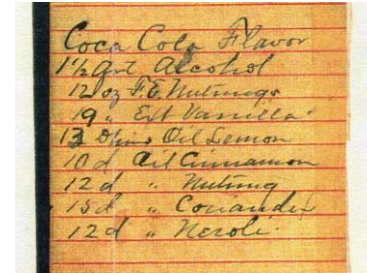 Coca Cola Flavor
1½ Alcohol
12 oz F.E. Nutmegs
19 " Ext Vanilla
13 Oil Lemon
10 d Oil Cinnamon
12 d " Nutmeg
15 d " Coriander
12 d " Neroli.